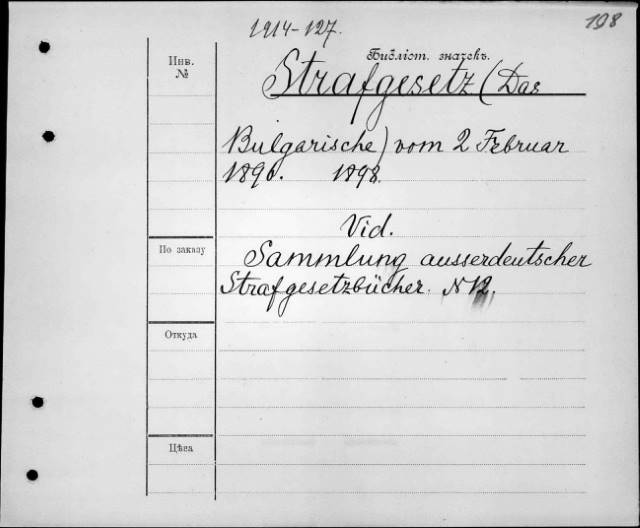 1914-127.
198
Инв.
№
Библіот. значекъ.
Strafgesetz (Das
Bulgarische) vom 2 Februar
1896. 1898.
Vid.
По заказу
Sammlung ausserdeutscher
Strafgesetzbücher. N 12.
Откуда
Цѣна